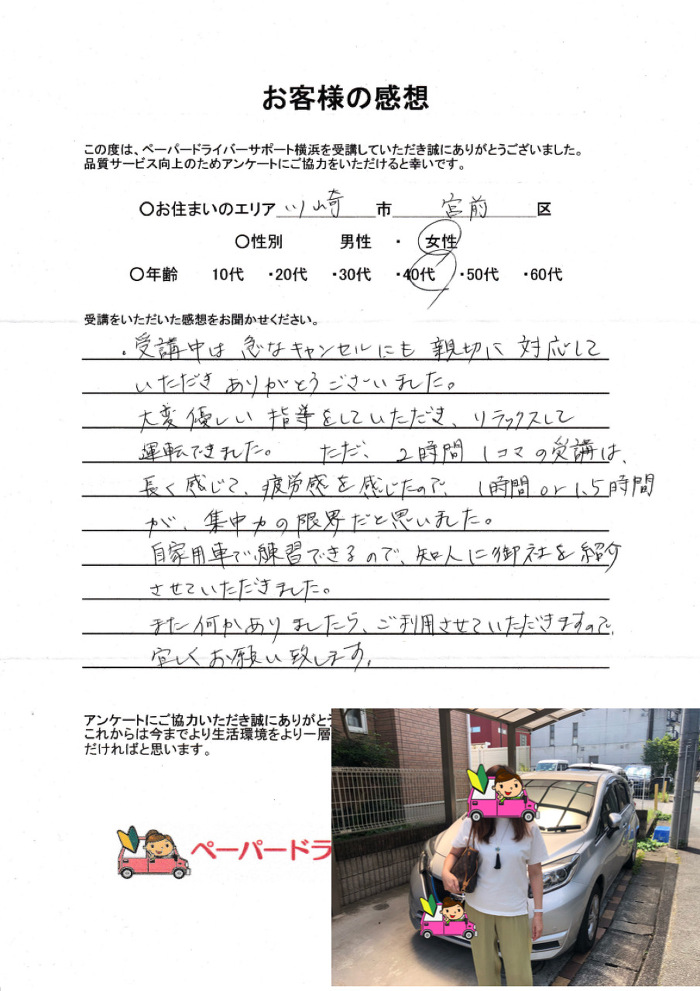 お客様の感想
この度は、ペーパードライバーサポート横浜を受講していただき誠にありがとうございました。
品質サービス向上のためアンケートにご協力をいただけると幸いです。
〇お住まいのエリア 川崎 市 宮前 区
〇性別 男性 ・ 女性
〇年齢 10代 ・20代 ・30代 ・40代 ・50代 ・60代
受講をいただいた感想をお聞かせください。
・受講中は 急なキャンセルにも 親切に 対応して
いただき ありがとうございました。
大変優しい 指導をしていただき、リラックスして
運転できました。 ただ、2時間 1コマの受講は、
長く感じて、疲労感を感じたので、1時間or1.5時間
が、集中力の限界だと思いました。
自家用車で練習できるので、知人に御社を紹介
させていただきました。
また何かありましたら、ご利用させていただきますので、
宜しくお願い致します。
アンケートにご協力いただき誠にありがと
これからは今までより生活環境をより一層
だければと思います。
ペーパードラ